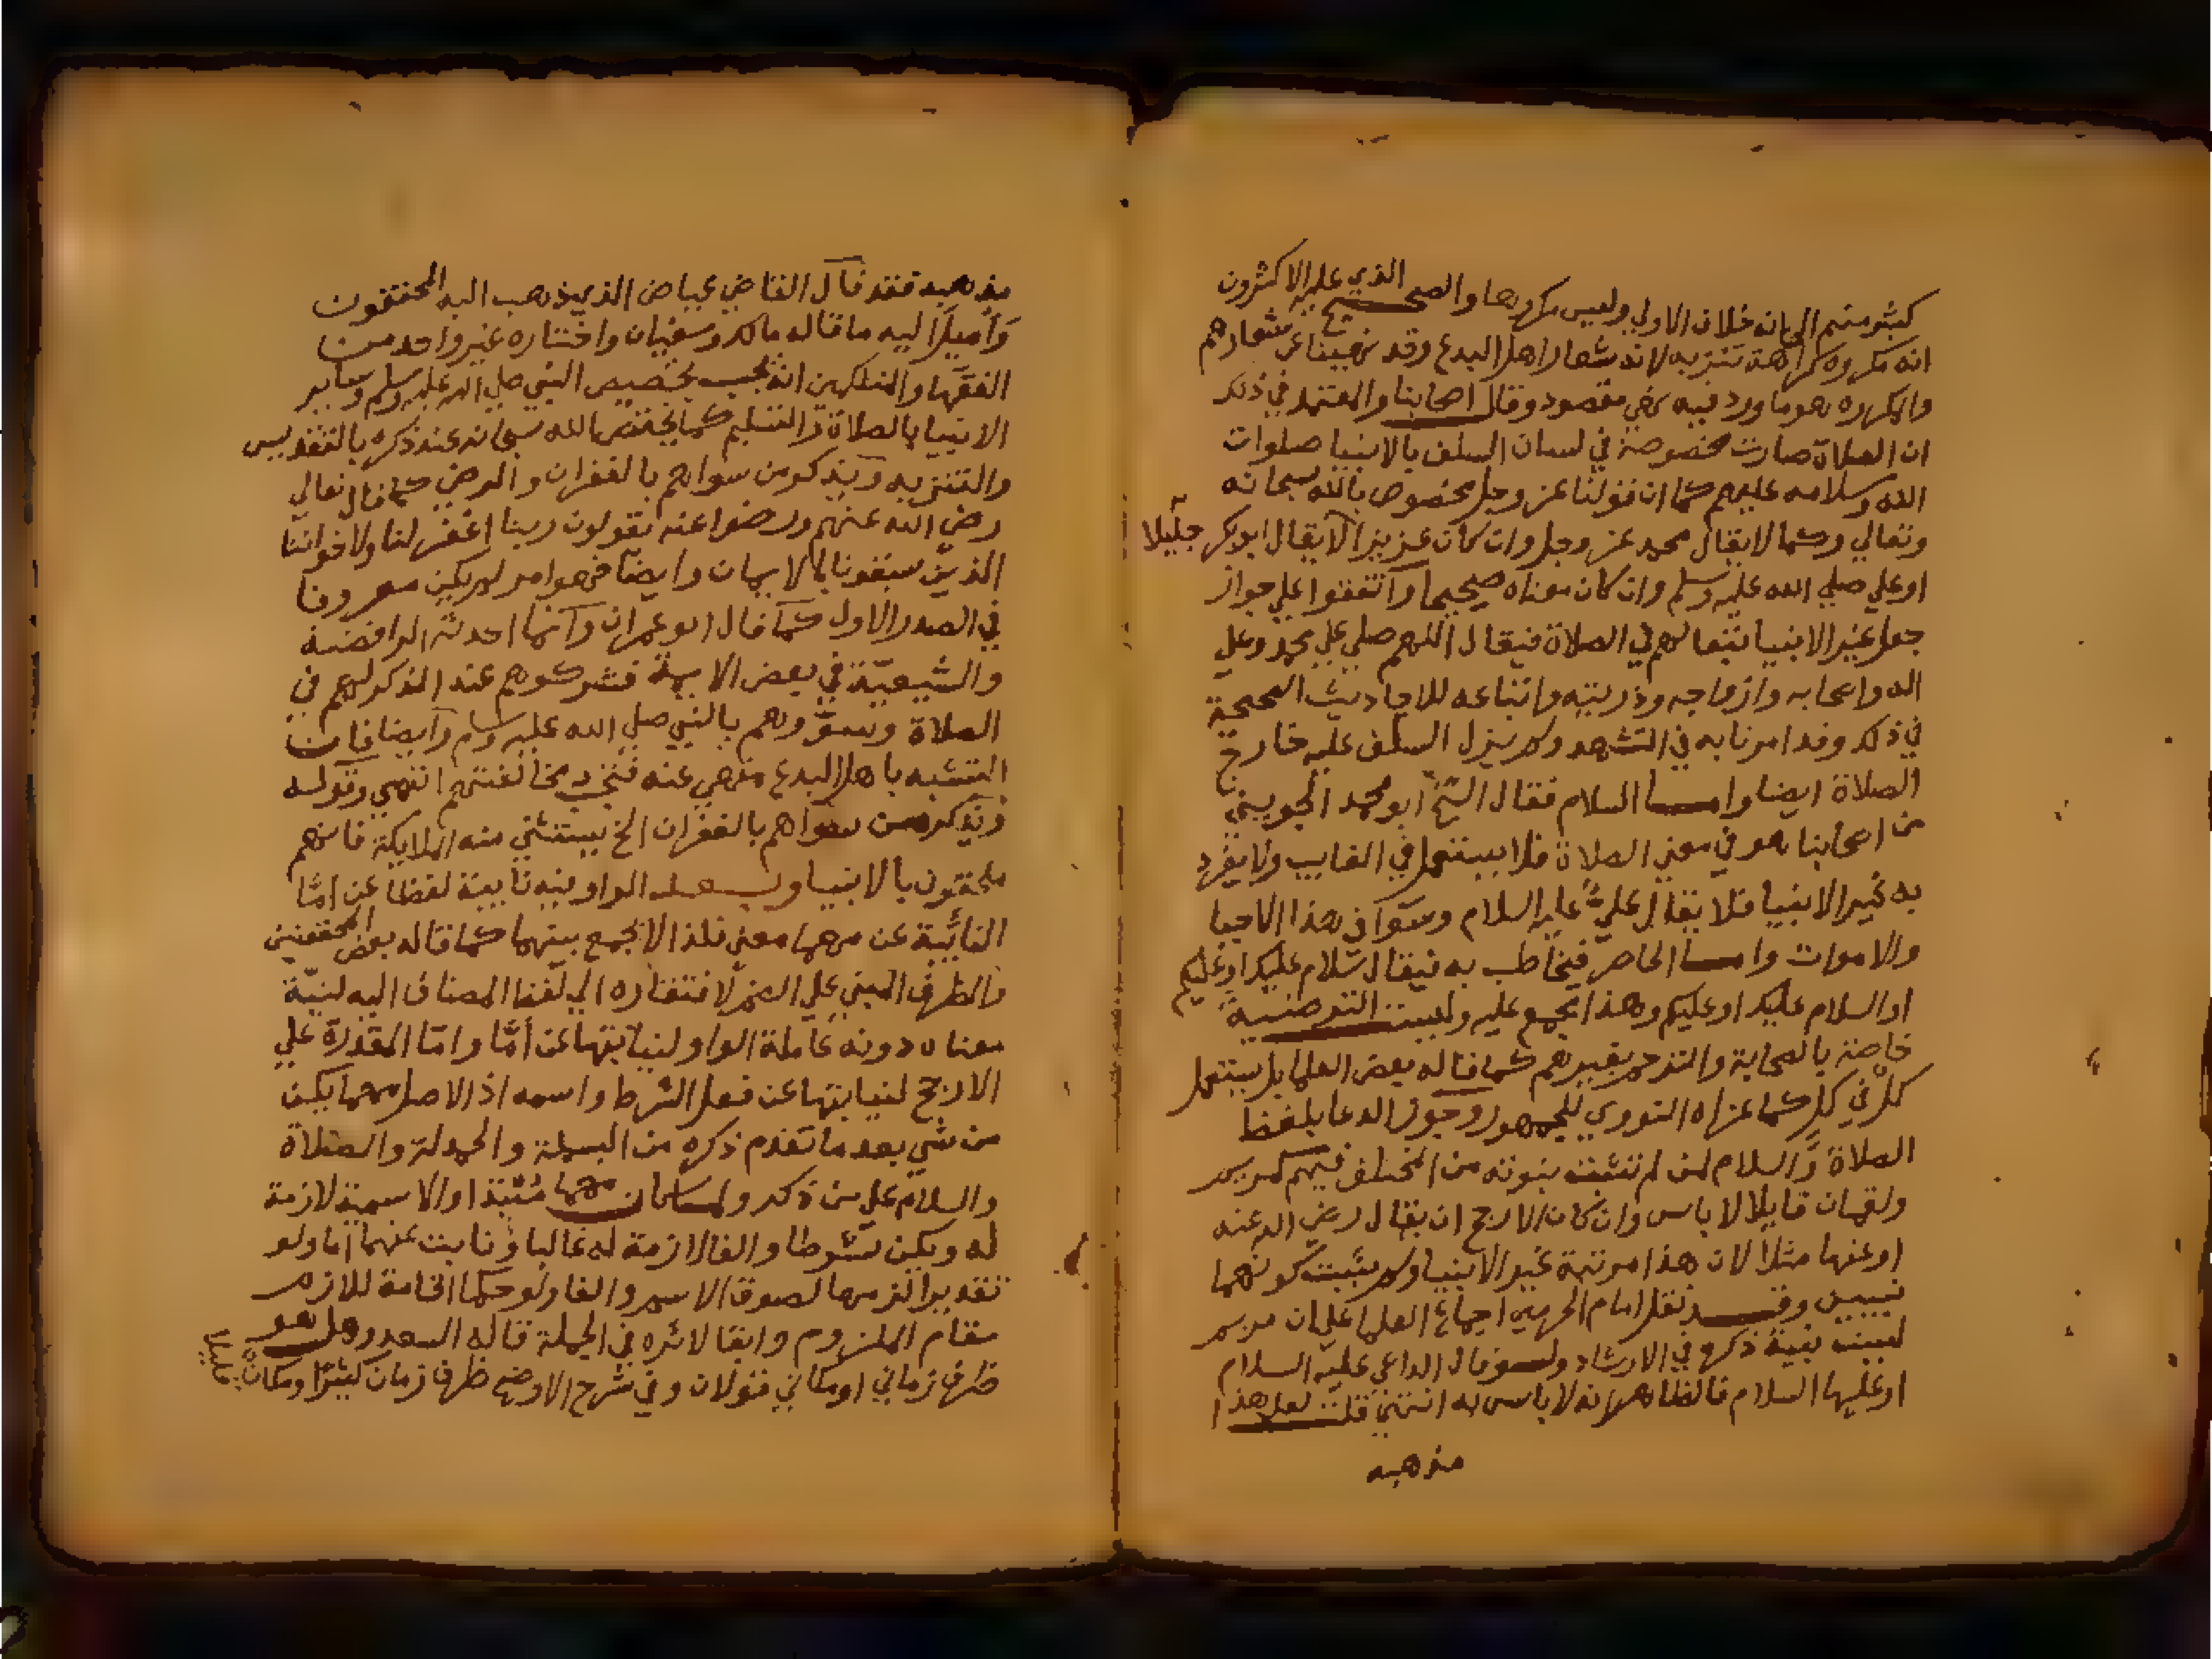 كثير منهم الي انه خلاف الاولي وليس مكروها والصحيح الذي عليه الاكثرون
انه مكروه كراهة تنزيه لانه شعار اهل البدع وقد نهينا عن شعارهم
والمكروه هو ما ورد فيه نهي مقصود وقال اصحابنا والمعتمد في ذلك
ان الصلاة صارت مخصوصة في لسان السلف بالانبيا صلوات
الله وسلامه عليهم كما ان قولنا عز وجل مخصوص بالله سبحانه
وتعالي وكما لا يقال محمد عز وجل وان كان عزيزا لا يقال ابو بكر جليلا
او علي صلي الله عليه وسلم وان كان معناه صحيحا واتفقوا علي جواز
جعل غير الانبيا تبعا لهم في الصلاة فيقال اللهم صلي علي محمد وعلي
اله واصحابه وازواجه وذريته واتباعه للاحاديث الصحيحة
في ذلك وقد امرنا به في التشهد ولم يزل السلف عليه خارج
الصلاة ايضا واما السلام فقال الشيخ ابو محمد الجويني
من اصحابنا هو في معني الصلاة فلا يستعمل في الغايب ولا يفرد
به غير الانبيا فلا يقال علي عليه السلام وسوا في هذا الاحيا
والاموات واما الحاضر فيخاطب به فيقال سلام عليك او عليكم
او السلام عليك او عليكم وهذا مجمع عليه وليست الترضية
خاصة بالصحابة والترحم بغيرهم كما قاله بعض العلما بل يستعمل
كل في كل كما عزاه النووي للجمهور وجوز الدعا بلفظ
الصلاة والسلام لمن لم تثبت نبوته من المختلف فيهم كمريم
ولقمان قايلا لا باس وان كان الارجح ان يقال رضي الله عنه
او عنها مثلا لان هذا مرتبة غير الانبيا ولم يثبت كونهما
نبيين وقد نقل امام الحرمين اجماع العلما علي ان مريم
ليست نبية ذكره في الارشاد ولو قال الداعي عليه السلام
او عليها السلام فالظاهر انه لا باس به انتهي قلت لعل هذا
مذهبه
مذهبه فقد قال القاضي عياض الذي ذهب اليه المحققون
واميل اليه ما قاله مالك وسفيان واختاره غير واحد من
الفقها والمتكلمين انه يجب تخصيص النبي صلي الله عليه وسلم وساير
الانبيا بالصلاة والتسليم كما يختص الله سبحانه عند ذكره بالتقديس
والتنزيه ويذكر من سواهم بالغفران والرضي كما قال تعالي
رضي الله عنهم ورضوا عنه يقولون ربنا اغفر لنا ولاخواننا
الذين سبقونا بالايمان وايضا فهو امر لم يكن معروفا
في الصدر الاول كما قال ابو عمران وانما احدثه الرافضة
والشيعية في بعض الايمة فشركوهم عند الذكر لهم في
الصلاة وسووهم بالنبي صلي الله عليه وسلم وايضا فان
التشبه باهل البدع منهي عنه فتجب مخالفتهم انتهي وقوله
ويذكر من سواهم بالغفران الخ يستثني منه الملايكة فانهم
ملحقون بالانبيا وبعد الواو فيه نايبة لفظا عن اما
النائبة عن مهما معني فلذا لا تجمع بينهما كما قاله بعض المحققين
والظرف المبني علي الضم لافتقاره الي لفظ المضاف اليه لنية
معناه دونه عاملة الواو لنيابتها عن اما واما المقدرة علي
الارجح لنيابتها عن فعل الشرط واسمه اذ الاصل مهما يكن
من شي بعد ما تقدم ذكره من البسملة والحمدلة والصلاة
والسلام علي من ذكر ولما كان مهما مبتدا والاسمية لازمة
له ويكن شرطا والفا لازمة له غالبا ونابت عنهما اما ولو
تقديرا لزمها لصوق الاسم والفا ولو حكما اقامة للازم
مقام الملزوم وابقا لاثره في الجملة قاله السعد وهل هو
ظرف زماني او مكاني قولان وفي شرح الاوضح ظرف زمان كثيرا ومكان قليلا